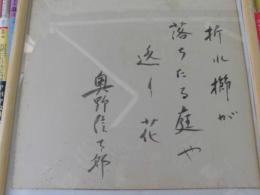 折れ櫛が
落ちたる庭や
返り花
奥野信太郎